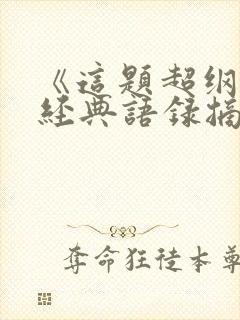 《這題超纲
經典語录摘
奪命狂徒本尊